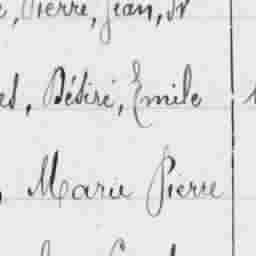 , Pierre, Jean, N
, Désiré, Emile
, Marie Pierre